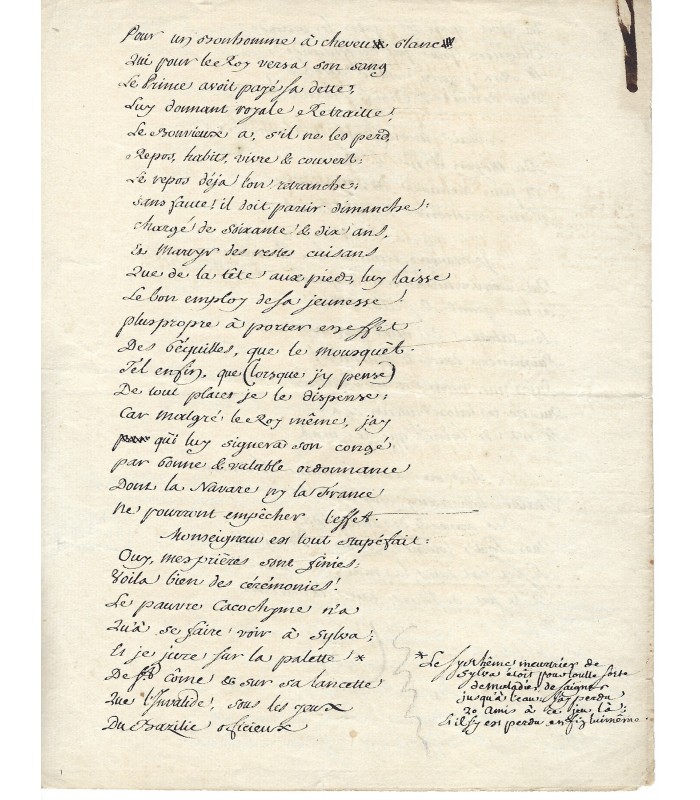 Pour un Bonhomme à cheveux blancs
Qui pour le Roy versa son sang
Le Prince avoit payé sa dette,
Luy donnant royale Retraitte!
Le Bonvieux a, s'il ne les perd,
Repos, habits, vivre & couvert:
Le repos déja l'on retranche:
sans faute! il doit partir dimanche:
chargé de soixante & dix ans,
Et Martyr des restes cuisans
Que de la tête aux pieds, luy laisse
Le bon employ de sa jeunesse!
plus propre à porter en effet
Des béquilles, que le mousquèt.
Tél enfin, que (lorsque j'y pense)
De tout placet je le dispense:
Car malgré le Roy même, j'ay
qui luy signera son congé
par bonne & valable ordonnance
Dont la Navare ny la France
ne pourront empêcher l'effet.
Monseigneur est tout stupéfait:
Ouy, mes prières sont finies:
Voila bien des cérémonies!
Le pauvre Cacochyme n'a
Qu'à se faire voir à Sylva;
Et je jure sur la palette *
De St Côme & sur sa lancette
Que l'Invalide, sous les yeux
Du Bazile officieux
* Le systhême meurtrier de
Sylva étoit pour toutte sorte
de maladies de saigner
jusqu'à l'eau: j'ay perdu
20 amis à ce jeu là:
il s'y est perdu enfin luimême.